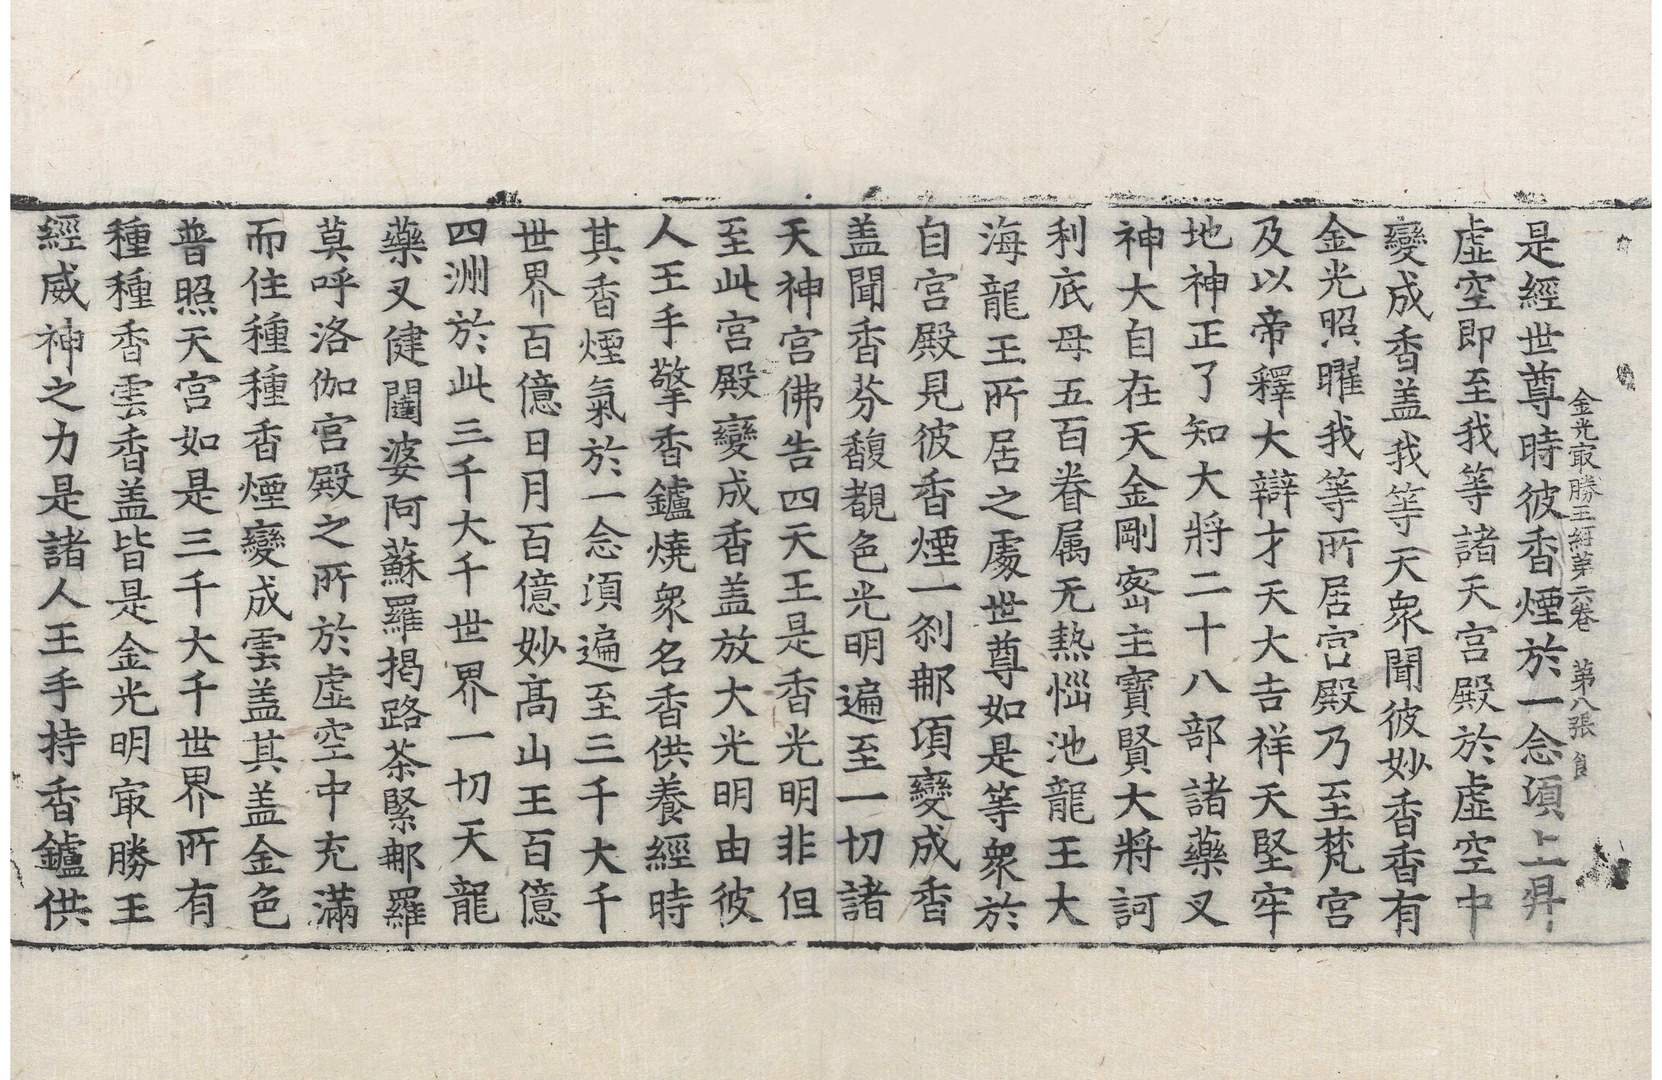 金光㝡勝王經第六卷 第八張 食
是經世尊時彼香煙於一念頃上昇
虛空即至我等諸天宮殿於虛空中
變成香盖我等天衆聞彼妙香香有
金光照曜我等所居宮殿乃至梵宮
及以帝釋大辯才天大吉祥天堅牢
地神正了知大將二十八部諸藥叉
神大自在天金剛密主寶賢大將訶
利底母五百眷属无熱惱池龍王大
海龍王所居之處世尊如是等衆於
自宮殿見彼香煙一刹那頃變成香
盖聞香芬馥覩色光明遍至一切諸
天神宮佛告四天王是香光明非但
至此宮殿變成香盖放大光明由彼
人王手擎香鑪燒衆名香供養經時
其香煙氣於一念頃遍至三千大千
世界百億日月百億妙高山王百億
四洲於此三千大千世界一切天龍
藥叉健闥婆阿蘇羅揭路荼緊那羅
莫呼洛伽宮殿之所於虛空中充滿
而住種種香煙變成雲盖其盖金色
普照天宮如是三千大千世界所有
種種香雲香盖皆是金光明㝡勝王
經威神之力是諸人王手持香鑪供